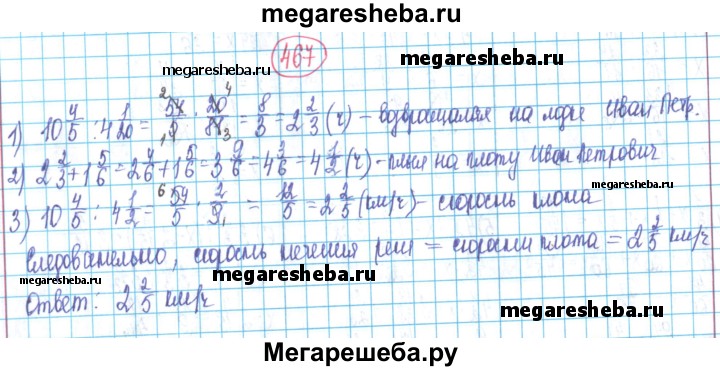 megaresheba.ru
467
megaresheba.ru
megaresheba.ru
1) 10 4/5 : 4 1/20 = 54/5 · 20/81 = 8/3 = 2 2/3 (ч) - возвращался на лодке Иван Петр.
2) 2 2/3 + 1 5/6 = 2 4/6 + 1 5/6 = 3 9/6 = 4 3/6 = 4 1/2 (ч) - плыл на плоту Иван Петрович
3) 10 4/5 : 4 1/2 = 54/5 · 2/9 = 12/5 = 2 2/5 (км/ч) - скорость плота
Следовательно, скорость течения реки = скорости плота = 2 2/5 км/ч
megaresheba.ru
megaresheba.ru
Ответ: 2 2/5 км/ч
megaresheba.ru
Мегарешеба.ру